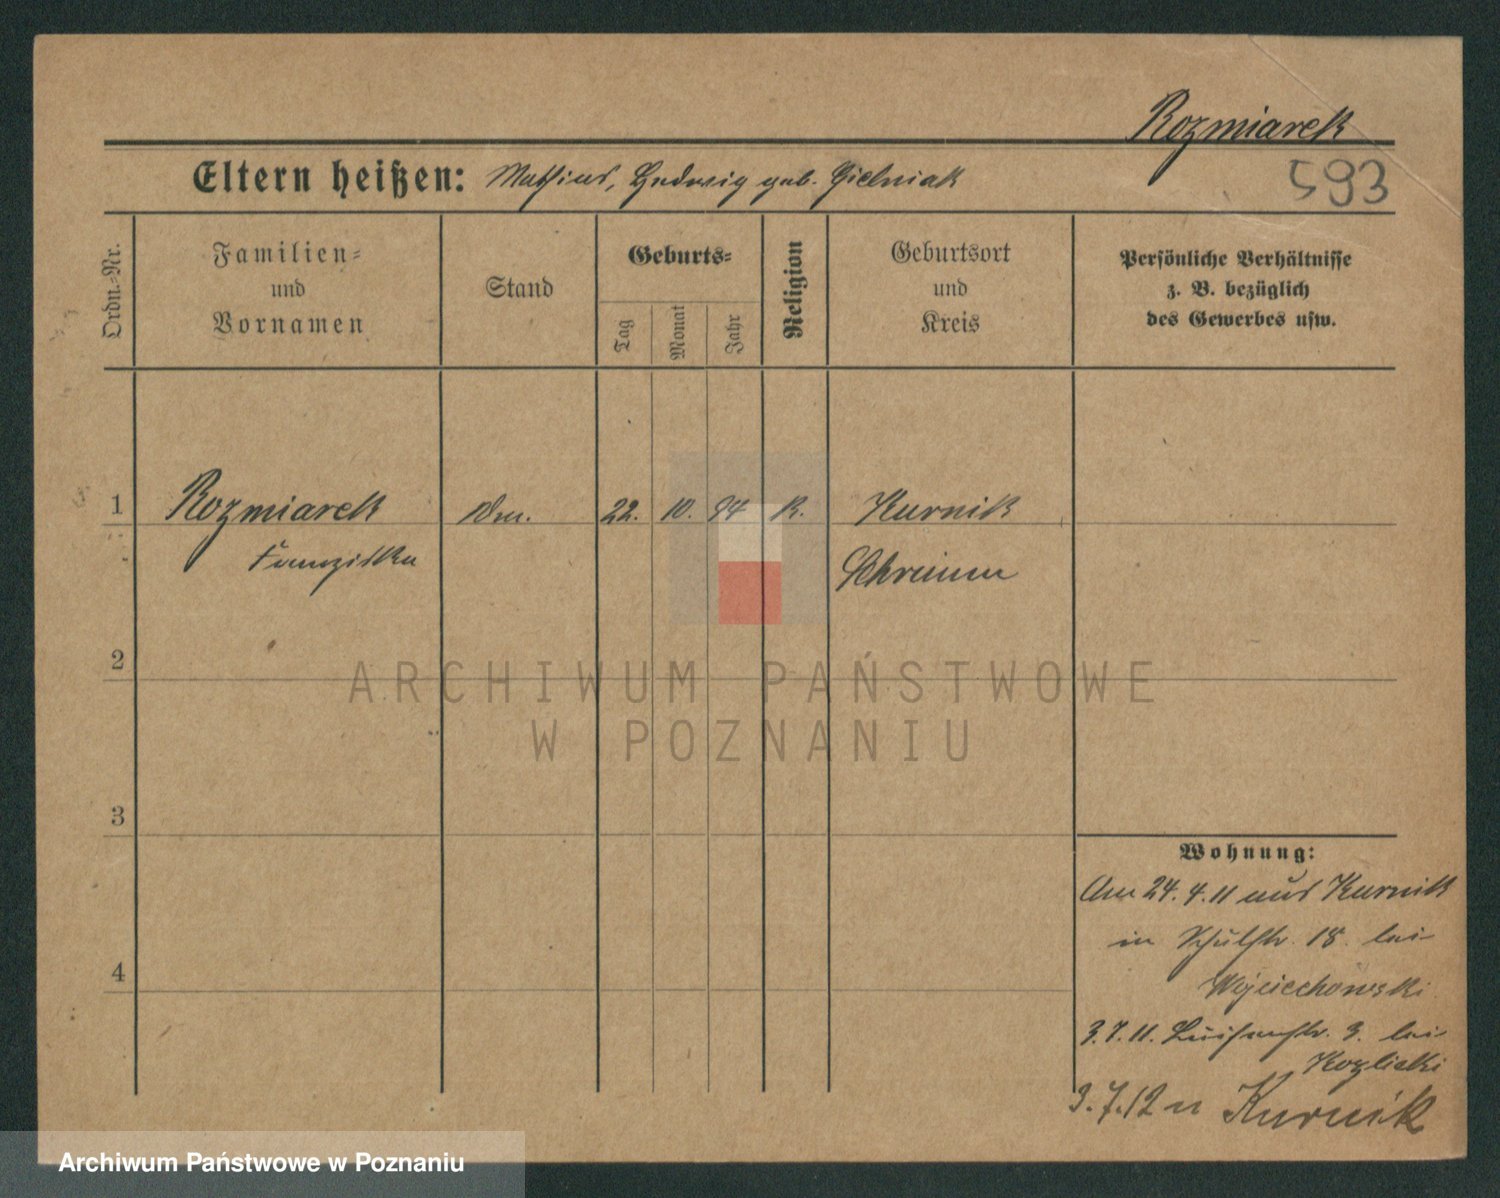 Rozmiarek
Eltern heißen: Mathias, Hedwig geb. Gielniak
593
Ordn.-Nr.
Familien-
und
Vornamen
Stand
Geburts-
Tag
Monat
Jahr
Religion
Geburtsort
und
Kreis
Persönliche Verhältnisse
z. B. bezüglich
des Gewerbes usw.
1 Rozmiarek 22. 10. 94 K. Kurnik
Franziska Schrimm
2
3
4
ARCHIWUM PAŃSTWOWE
W POZNANIU
Wohnung:
Am 24.4.11 aus Kurnik
in Schulstr. 18. bei
Wojciechowski
3.7.11. Luisenstr. 3. bei
Kozlicki
3.7.12 n Kurnik
Archiwum Państwowe w Poznaniu